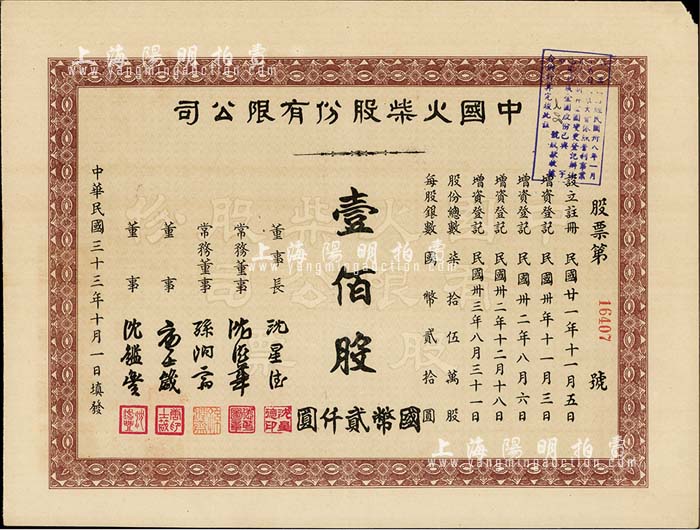 中國火柴股份有限公司
股票第 16407 號
設立註冊 民國廿一年十一月五日
增資登記 民國卅年十一月三日
增資登記 民國卅二年八月六日
增資登記 民國卅二年十二月十八日
增資登記 民國卅三年八月三十一日
股份總數 柒拾伍萬股
每股銀數 國幣貳拾圓
壹佰股
國幣貳仟圓
董事長 沈星德
常務董事
常務董事 孫洞
董事
董事 沈鑑
中華民國三十三年十月一日填發
上海陽明拍賣
www.yangmingauction.com
上海陽明拍賣
www.yangmingauction.com
上海陽明拍賣
www.yangmingauction.com